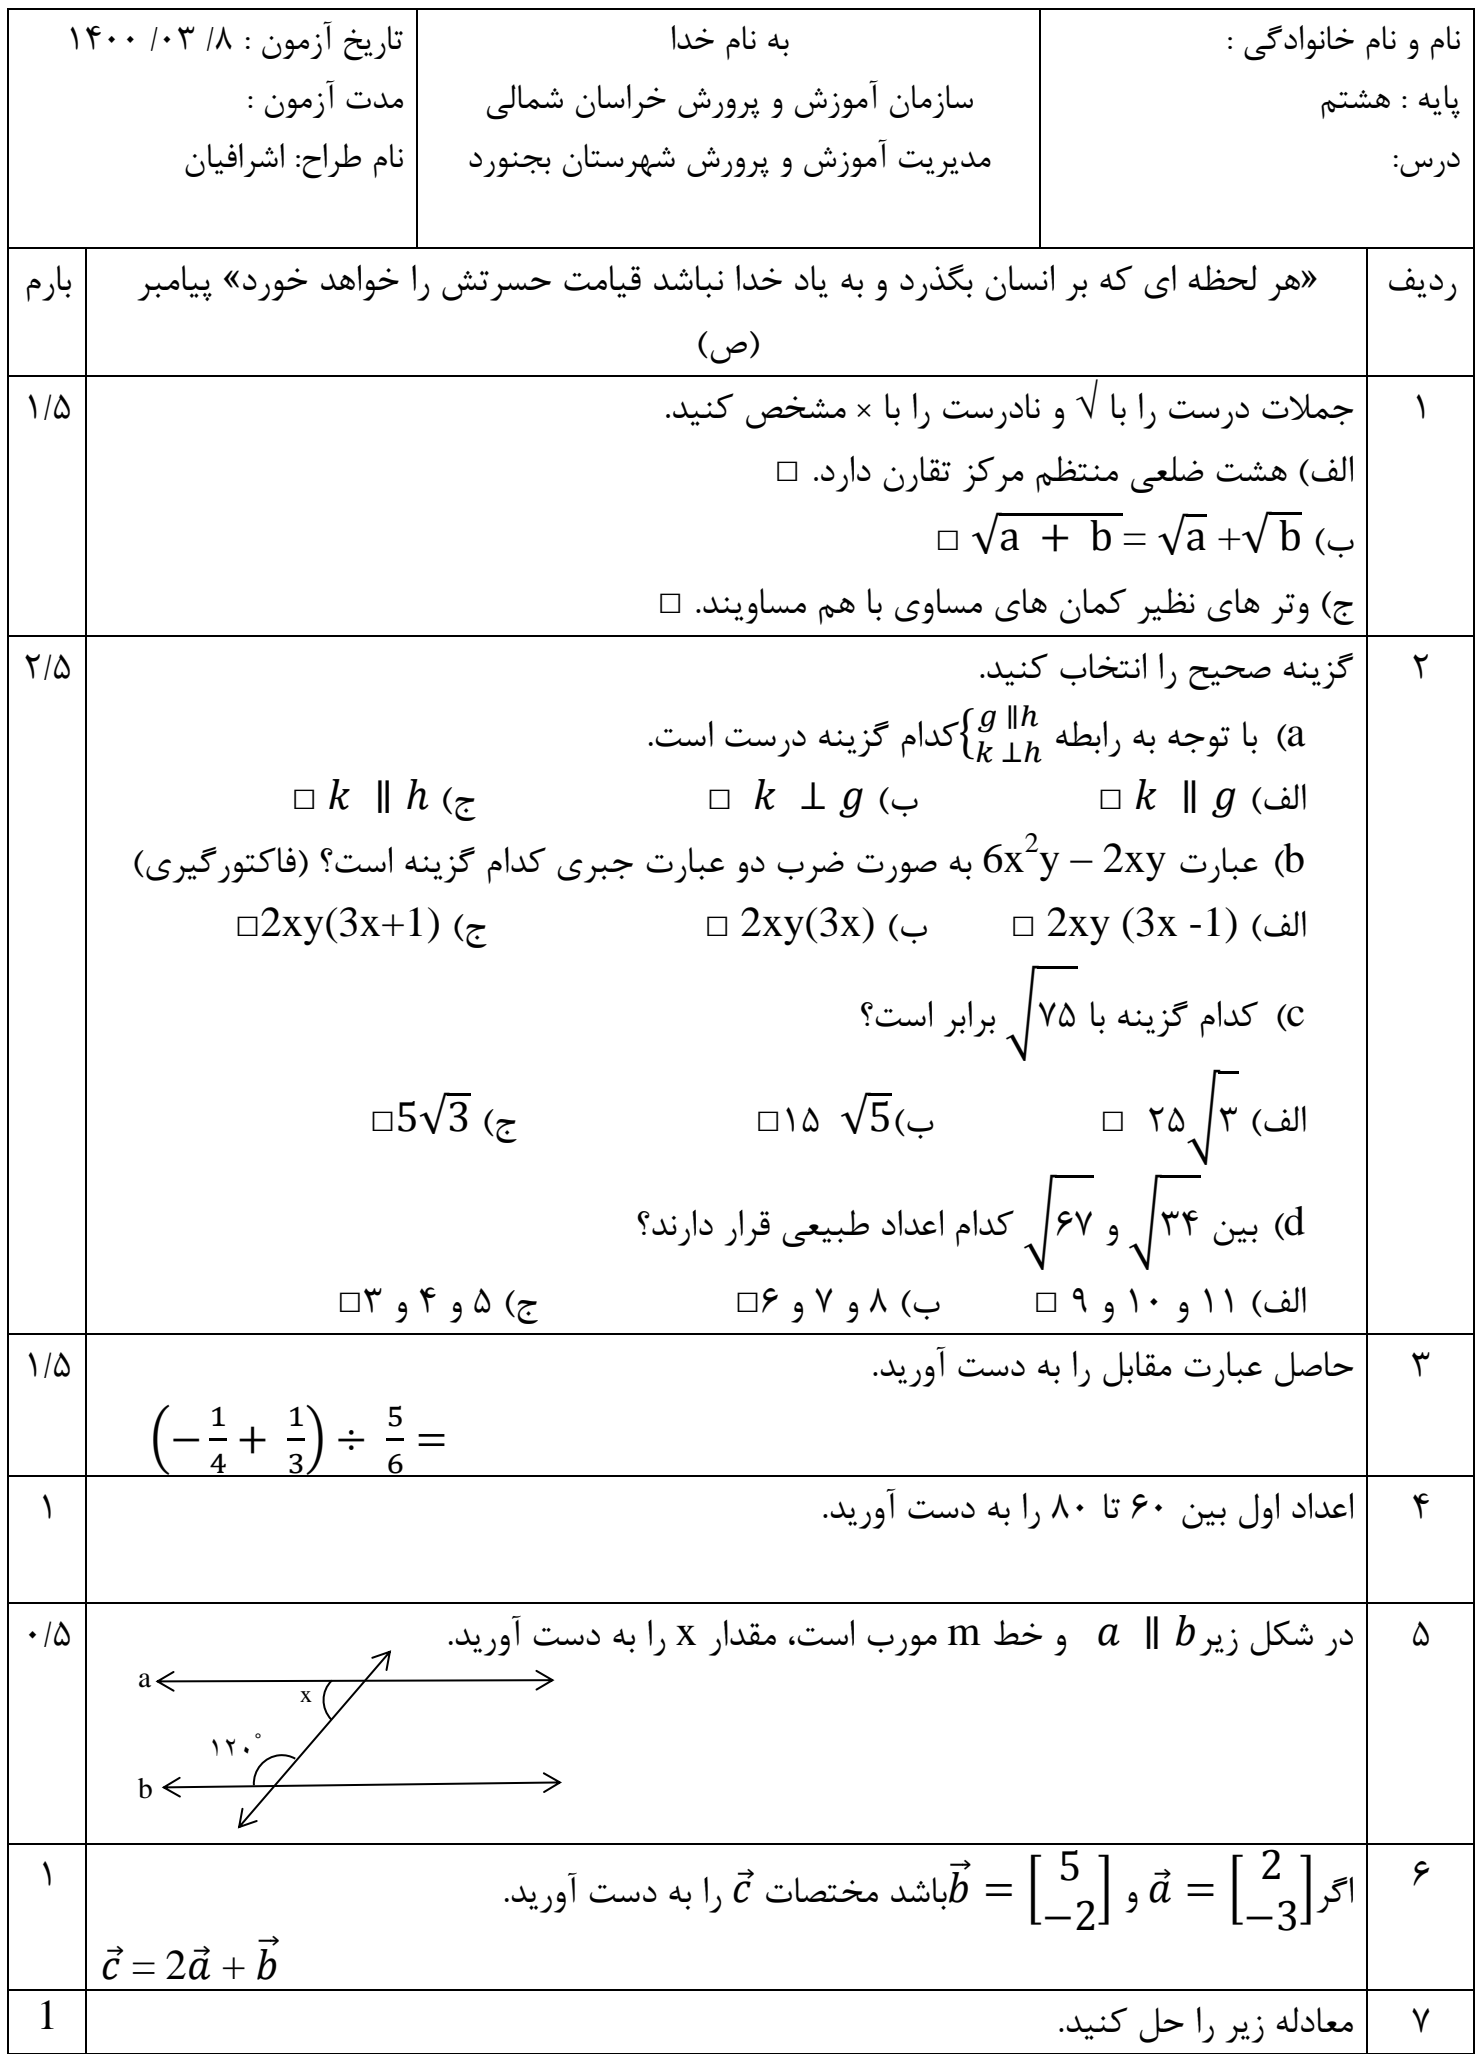 نام و نام خانوادگی :
پایه : هشتم
درس:
به نام خدا
سازمان آموزش و پرورش خراسان شمالی
مدیریت آموزش و پرورش شهرستان بجنورد
تاریخ آزمون : ۸/ ۰۳/ ۱۴۰۰
مدت آزمون :
نام طراح: اشرافیان
ردیف
«هر لحظه ای که بر انسان بگذرد و به یاد خدا نباشد قیامت حسرتش را خواهد خورد» پیامبر
(ص)
بارم
۱
جملات درست را با √ و نادرست را با × مشخص کنید.
۱/۵
الف) هشت ضلعی منتظم مرکز تقارن دارد. □
ب) √(a + b) = √a + √b □
ج) وتر های نظیر کمان های مساوی با هم مساویند. □
۲
گزینه صحیح را انتخاب کنید.
۲/۵
a) با توجه به رابطه {g ∥ h , k ⊥ h کدام گزینه درست است.
الف) k ∥ g □ ب) k ⊥ g □ ج) k ∥ h □
b) عبارت 6x²y – 2xy به صورت ضرب دو عبارت جبری کدام گزینه است؟ (فاکتورگیری)
الف) 2xy (3x -1) □ ب) 2xy(3x) □ ج) 2xy(3x+1) □
c) کدام گزینه با √۷۵ برابر است؟
الف) ۲۵√۳ □ ب) ۱۵ √5 □ ج) 5√3 □
d) بین √۳۴ و √۶۷ کدام اعداد طبیعی قرار دارند؟
الف) ۱۱ و ۱۰ و ۹ □ ب) ۸ و ۷ و ۶ □ ج) ۵ و ۴ و ۳ □
۳
حاصل عبارت مقابل را به دست آورید.
۱/۵
(−1/4 + 1/3) ÷ 5/6 =
۴
اعداد اول بین ۶۰ تا ۸۰ را به دست آورید.
۱
۵
در شکل زیر a ∥ b و خط m مورب است، مقدار x را به دست آورید.
۰/۵
a
x
۱۲۰°
b
۶
اگر a⃗ = [2 −3] و b⃗ = [5 −2] باشد مختصات c⃗ را به دست آورید.
۱
c⃗ = 2a⃗ + b⃗
۷
معادله زیر را حل کنید.
1